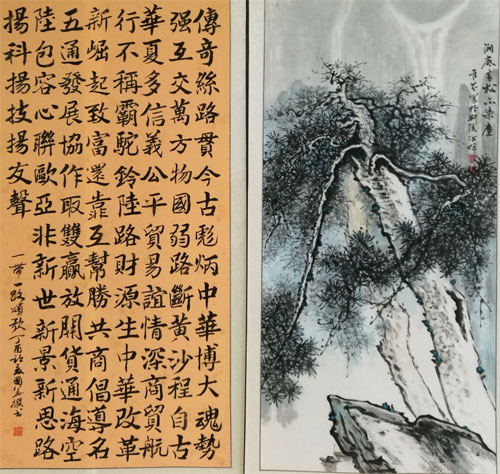 傳奇絲路貫今古彪炳中華博大魂勢
强互交萬方物國弱路斷黄沙程自古
華夏多信義公平貿易誼情深商貿航
行不稱霸駝鈴陸路財源生中華改革
新崛起致富還靠互幫勝共商倡導名
五通發展協作取雙贏放開貨通海空
陸包容心聯歐亞非新世新景新思路
揚科揚技揚友聲
一帶一路頌歌丁酉
澗底青松不染塵